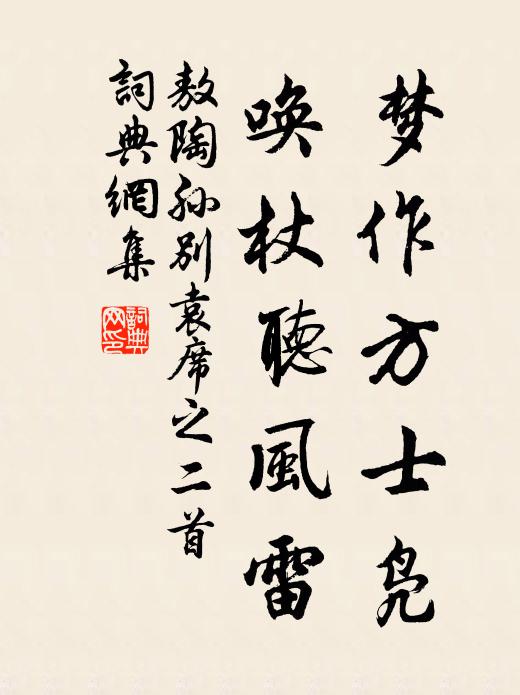 梦作方士凫
唤杖聽風雷
敖陶孙别袁席之二首
詞典網集
詞典网印